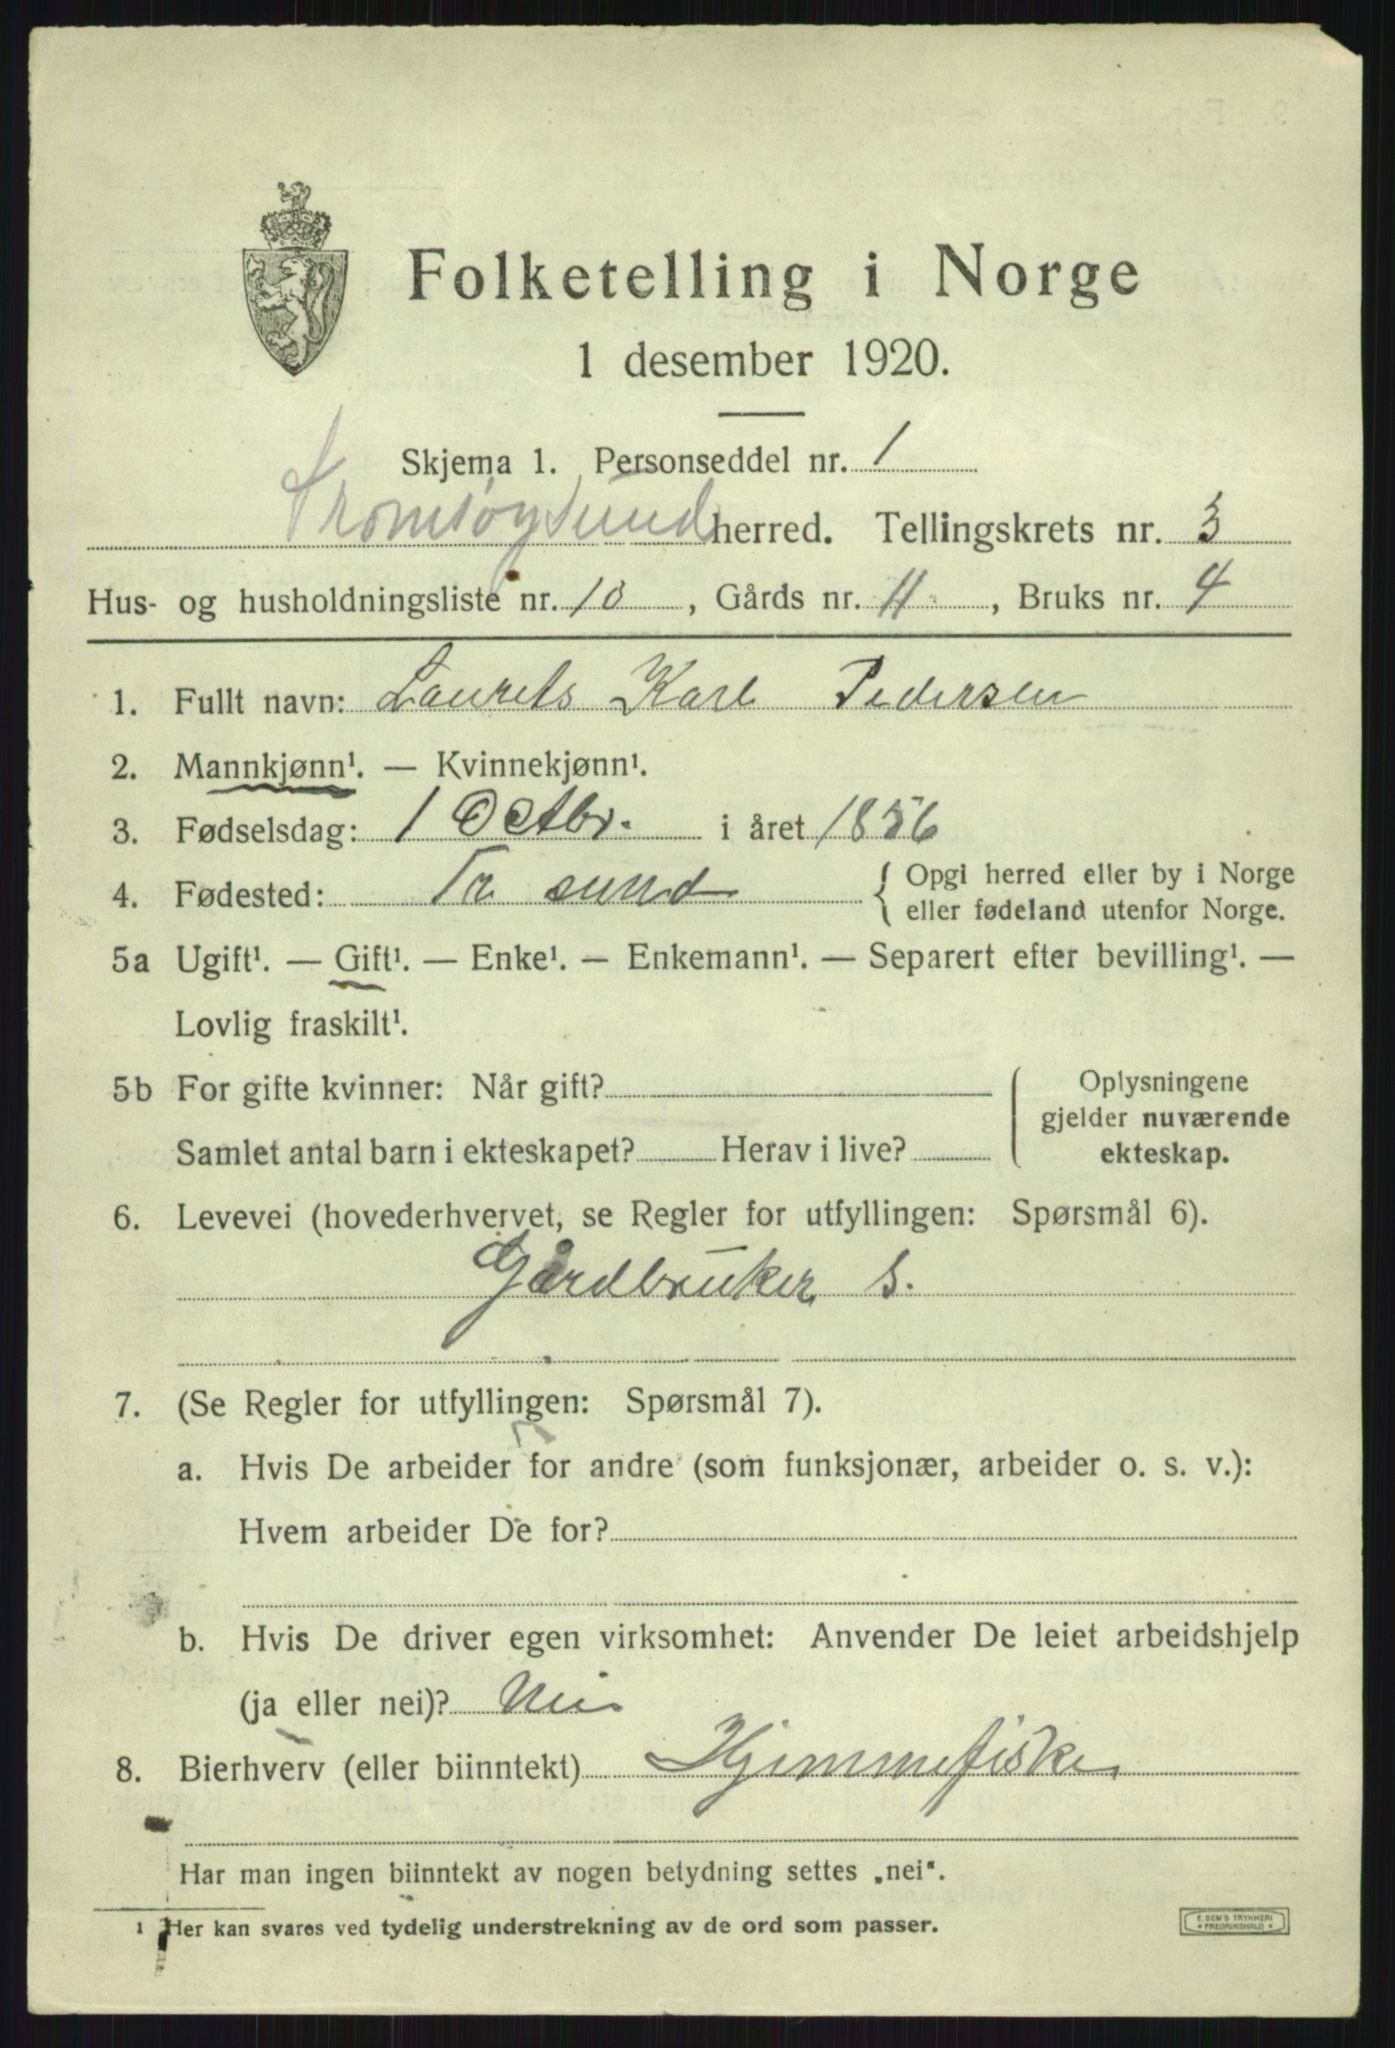 Folketelling i Norge
1 desember 1920.
Skjema 1. Personseddel nr. 1
Tromsøysund herred. Tellingskrets nr. 3
Hus- og husholdningsliste nr. 10, Gårds nr. 11, Bruks nr. 4
1. Fullt navn: Laurets Karl Pedersen
2. Mannkjønn¹. — Kvinnekjønn¹.
3. Fødselsdag: 1 Octbr. i året 1856
4. Fødested: Tr sund { Opgi herred eller by i Norge
eller fødeland utenfor Norge.
5a Ugift¹. — Gift¹. — Enke¹. — Enkemann¹. — Separert efter bevilling¹. —
Lovlig fraskilt¹.
5b For gifte kvinner: Når gift?
Samlet antal barn i ekteskapet? Herav i live?
Oplysningene
gjelder nuværende
ekteskap.
6. Levevei (hovederhvervet, se Regler for utfyllingen: Spørsmål 6).
Gårdbruker s.
7. (Se Regler for utfyllingen: Spørsmål 7).
a. Hvis De arbeider for andre (som funksjonær, arbeider o. s. v.):
Hvem arbeider De for?
b. Hvis De driver egen virksomhet: Anvender De leiet arbeidshjelp
(ja eller nei)? Nei
8. Bierhverv (eller biinntekt) Hjemmefiske
Har man ingen biinntekt av nogen betydning settes „nei“.
¹ Her kan svares ved tydelig understrekning av de ord som passer.
E. SEM'S TRYKKERI
* FREDRIKSHALD *